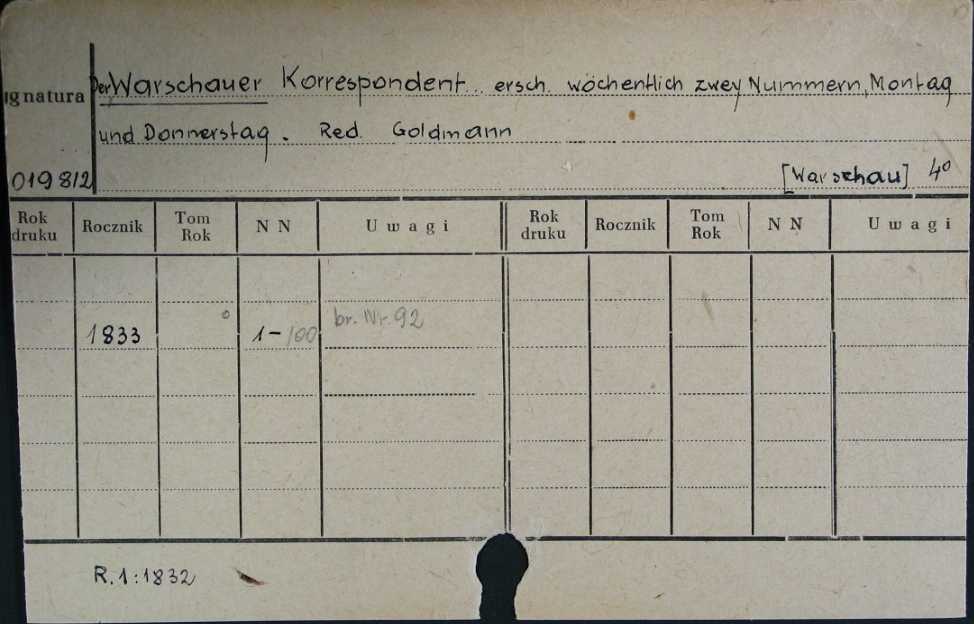 Der Warschauer Korrespondent... ersch. wöchentlich zwey Nummern, Montag
ignatura
und Donnerstag. Red. Goldmann
019812
[Warschau] 4°
Rok druku Rocznik Tom Rok NN Uwagi Rok druku Rocznik Tom Rok NN Uwagi
1833 1-100 br. Nr. 92
R.1:1832